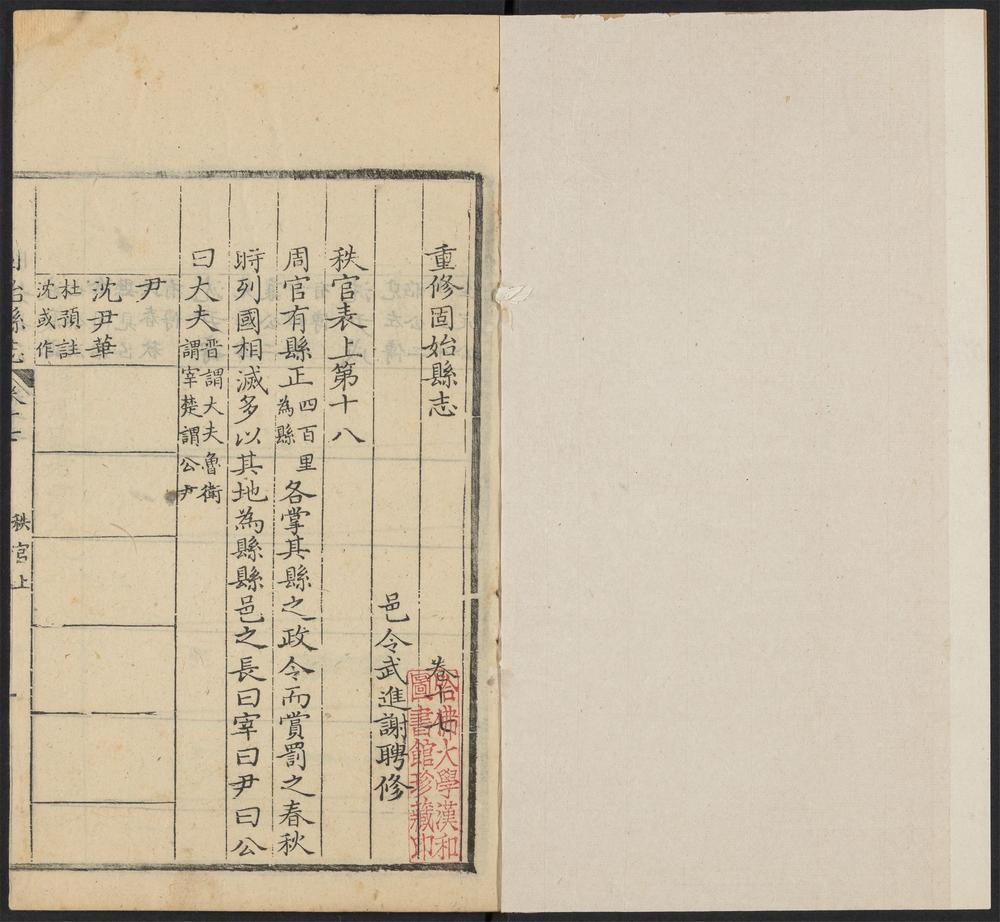 重修固始縣志 卷十七
哈佛大學漢和
圖書館珍藏印
邑令武進謝聘修
秩官表上第十八
周官有縣正四百里為縣各掌其縣之政令而賞罰之春秋
時列國相滅多以其地為縣縣邑之長曰宰曰尹曰公
曰大夫晋謂大夫魯衛謂宰楚謂公尹
尹
沈尹華
杜預註
沈或作
固始縣志 卷十七 秩官上 一